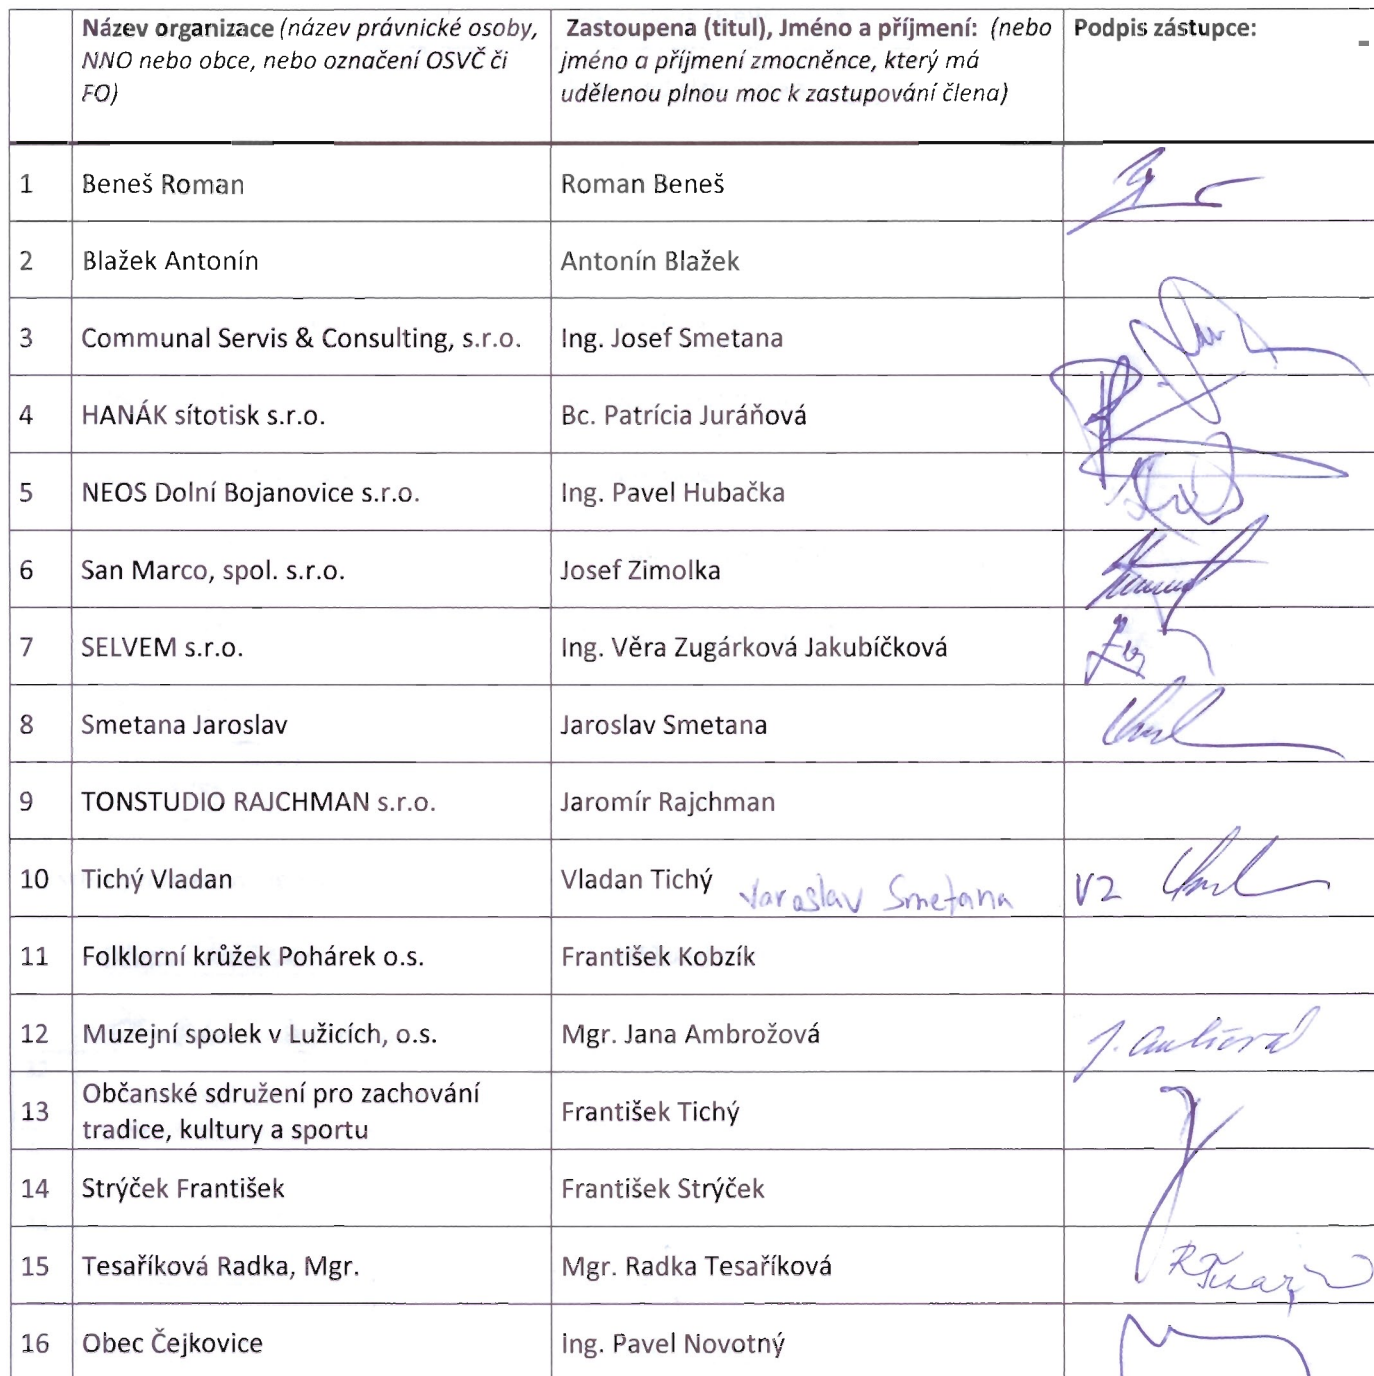 Název organizace (název právnické osoby, NNO nebo obce, nebo označení OSVČ či FO)
Zastoupena (titul), Jméno a příjmení: (nebo jméno a příjmení zmocněnce, který má udělenou plnou moc k zastupování člena)
Podpis zástupce:
1 Beneš Roman Roman Beneš
2 Blažek Antonín Antonín Blažek
3 Communal Servis & Consulting, s.r.o. Ing. Josef Smetana
4 HANÁK sítotisk s.r.o. Bc. Patrícia Juráňová
5 NEOS Dolní Bojanovice s.r.o. Ing. Pavel Hubačka
6 San Marco, spol. s.r.o. Josef Zimolka
7 SELVEM s.r.o. Ing. Věra Zugárková Jakubíčková
8 Smetana Jaroslav Jaroslav Smetana
9 TONSTUDIO RAJCHMAN s.r.o. Jaromír Rajchman
10 Tichý Vladan Vladan Tichý Jaroslav Smetana VZ
11 Folklorní krůžek Pohárek o.s. František Kobzík
12 Muzejní spolek v Lužicích, o.s. Mgr. Jana Ambrožová
13 Občanské sdružení pro zachování tradice, kultury a sportu František Tichý
14 Strýček František František Strýček
15 Tesaříková Radka, Mgr. Mgr. Radka Tesaříková
16 Obec Čejkovice Ing. Pavel Novotný